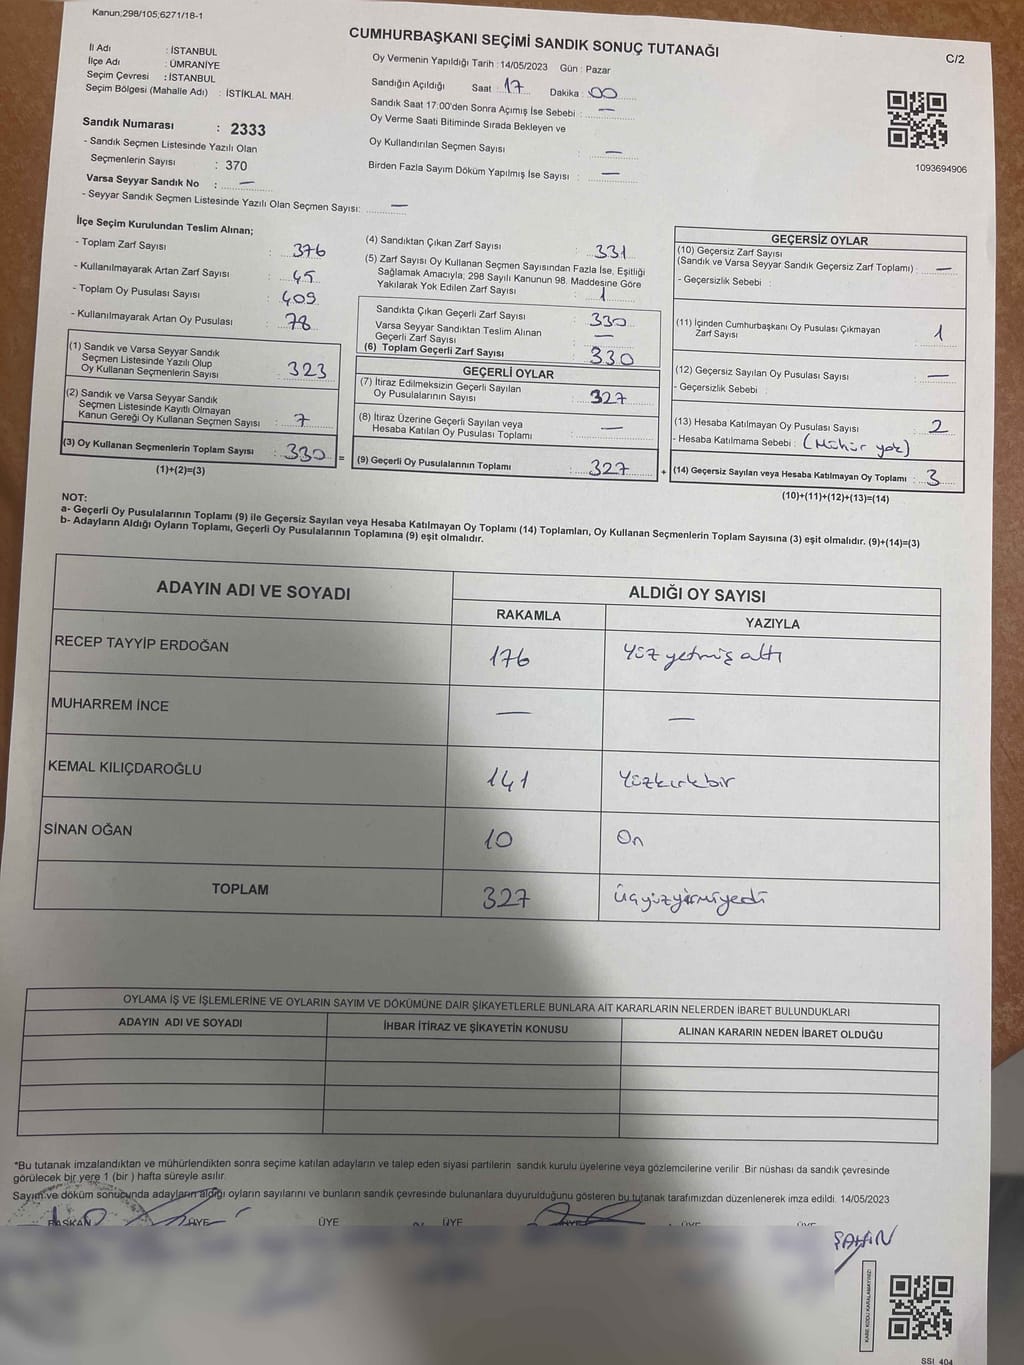 Kanun;298/105;6271/18-1
CUMHURBAŞKANI SEÇİMİ SANDIK SONUÇ TUTANAĞI
C/2
İl Adı : İSTANBUL
İlçe Adı : ÜMRANİYE
Seçim Çevresi : İSTANBUL
Seçim Bölgesi (Mahalle Adı) : İSTİKLAL MAH.
Oy Vermenin Yapıldığı Tarih : 14/05/2023 Gün : Pazar
Sandığın Açıldığı Saat : 17 Dakika : 00
Sandık Saat 17:00'den Sonra Açımış İse Sebebi : —
Oy Verme Saati Bitiminde Sırada Bekleyen ve
Oy Kullandırılan Seçmen Sayısı : —
Birden Fazla Sayım Döküm Yapılmış İse Sayısı : —
1093694906
Sandık Numarası : 2333
- Sandık Seçmen Listesinde Yazılı Olan
Seçmenlerin Sayısı : 370
Varsa Seyyar Sandık No : —
- Seyyar Sandık Seçmen Listesinde Yazılı Olan Seçmen Sayısı: —
İlçe Seçim Kurulundan Teslim Alınan;
- Toplam Zarf Sayısı : 376
- Kullanılmayarak Artan Zarf Sayısı : 45
- Toplam Oy Pusulası Sayısı : 409
- Kullanılmayarak Artan Oy Pusulası : 78
(1) Sandık ve Varsa Seyyar Sandık
Seçmen Listesinde Yazılı Olup
Oy Kullanan Seçmenlerin Sayısı : 323
(2) Sandık ve Varsa Seyyar Sandık
Seçmen Listesinde Kayıtlı Olmayan
Kanun Gereği Oy Kullanan Seçmen Sayısı : 7
(3) Oy Kullanan Seçmenlerin Toplam Sayısı : 330 =
(1)+(2)=(3)
(4) Sandıktan Çıkan Zarf Sayısı : 331
(5) Zarf Sayısı Oy Kullanan Seçmen Sayısından Fazla İse, Eşitliği
Sağlamak Amacıyla; 298 Sayılı Kanunun 98. Maddesine Göre
Yakılarak Yok Edilen Zarf Sayısı : 1
Sandıkta Çıkan Geçerli Zarf Sayısı : 330
Varsa Seyyar Sandıktan Teslim Alınan
Geçerli Zarf Sayısı : —
(6) Toplam Geçerli Zarf Sayısı : 330
GEÇERLİ OYLAR
(7) İtiraz Edilmeksizin Geçerli Sayılan
Oy Pusulalarının Sayısı : 327
(8) İtiraz Üzerine Geçerli Sayılan veya
Hesaba Katılan Oy Pusulası Toplamı : —
(9) Geçerli Oy Pusulalarının Toplamı : 327 +
GEÇERSİZ OYLAR
(10) Geçersiz Zarf Sayısı
(Sandık ve Varsa Seyyar Sandık Geçersiz Zarf Toplamı) : —
- Geçersizlik Sebebi :
(11) İçinden Cumhurbaşkanı Oy Pusulası Çıkmayan
Zarf Sayısı : 1
(12) Geçersiz Sayılan Oy Pusulası Sayısı : —
- Geçersizlik Sebebi :
(13) Hesaba Katılmayan Oy Pusulası Sayısı : 2
- Hesaba Katılmama Sebebi : (Mühür yok)
(14) Geçersiz Sayılan veya Hesaba Katılmayan Oy Toplamı : 3
(10)+(11)+(12)+(13)=(14)
NOT:
a- Geçerli Oy Pusulalarının Toplamı (9) ile Geçersiz Sayılan veya Hesaba Katılmayan Oy Toplamı (14) Toplamları, Oy Kullanan Seçmenlerin Toplam Sayısına (3) eşit olmalıdır. (9)+(14)=(3)
b- Adayların Aldığı Oyların Toplamı, Geçerli Oy Pusulalarının Toplamına (9) eşit olmalıdır.
ADAYIN ADI VE SOYADI
ALDIĞI OY SAYISI
RAKAMLA YAZIYLA
RECEP TAYYİP ERDOĞAN 176 Yüz yetmiş altı
MUHARREM İNCE — —
KEMAL KILIÇDAROĞLU 141 Yüzkırkbir
SİNAN OĞAN 10 On
TOPLAM 327 Üçyüzyirmiyedi
OYLAMA İŞ VE İŞLEMLERİNE VE OYLARIN SAYIM VE DÖKÜMÜNE DAİR ŞİKAYETLERLE BUNLARA AİT KARARLARIN NELERDEN İBARET BULUNDUKLARI
ADAYIN ADI VE SOYADI İHBAR İTİRAZ VE ŞİKAYETİN KONUSU ALINAN KARARIN NEDEN İBARET OLDUĞU
*Bu tutanak imzalandıktan ve mühürlendikten sonra seçime katılan adayların ve talep eden siyasi partilerin sandık kurulu üyelerine veya gözlemcilerine verilir. Bir nüshası da sandık çevresinde
görülecek bir yere 1 (bir ) hafta süreyle asılır.
Sayım ve döküm sonucunda adayların aldığı oyların sayılarını ve bunların sandık çevresinde bulunanlara duyurulduğunu gösteren bu tutanak tarafımızdan düzenlenerek imza edildi. 14/05/2023
BAŞKAN ÜYE ÜYE ÜYE ÜYE ÜYE
ŞAHİN
KARE KODU KARALAMAYINIZ!
SSI_404